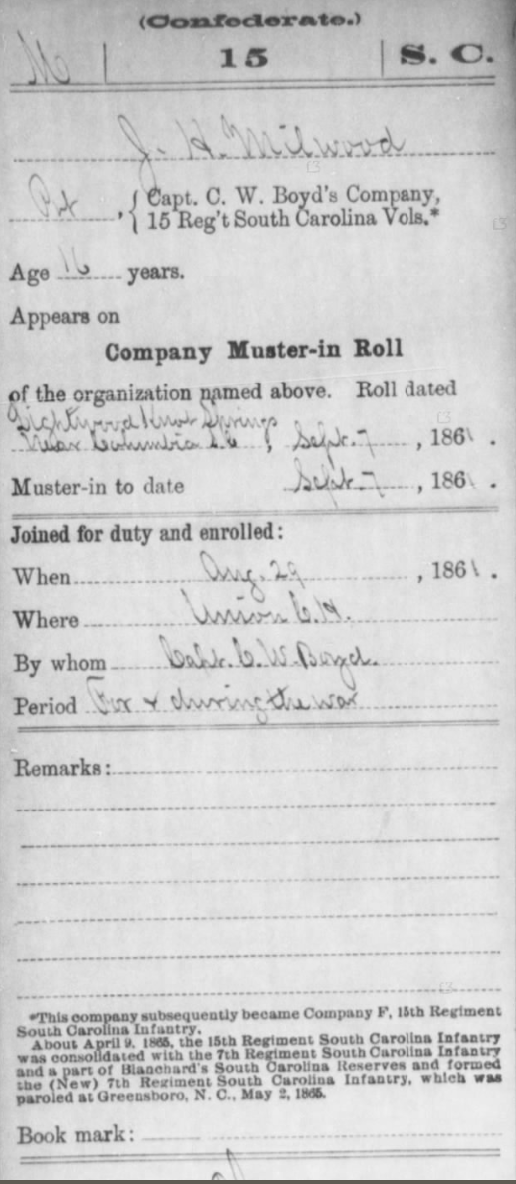 (Confederate.)
M | 15 | S. C.
J. H. Milwood
Pvt, { Capt. C. W. Boyd's Company,
15 Reg't South Carolina Vols.*
Age 16 years.
Appears on
Company Muster-in Roll
of the organization named above. Roll dated
Lightwood Knot Springs
Near Columbia S.C., Sept. 7, 1861.
Muster-in to date Sept. 7, 1861.
Joined for duty and enrolled:
When Aug. 29, 1861.
Where Union C.H.
By whom Capt. C. W. Boyd.
Period For & during the war
Remarks:
*This company subsequently became Company F, 15th Regiment
South Carolina Infantry.
About April 9, 1865, the 15th Regiment South Carolina Infantry
was consolidated with the 7th Regiment South Carolina Infantry
and a part of Blanchard's South Carolina Reserves and formed
the (New) 7th Regiment South Carolina Infantry, which was
paroled at Greensboro, N. C., May 2, 1865.
Book mark: